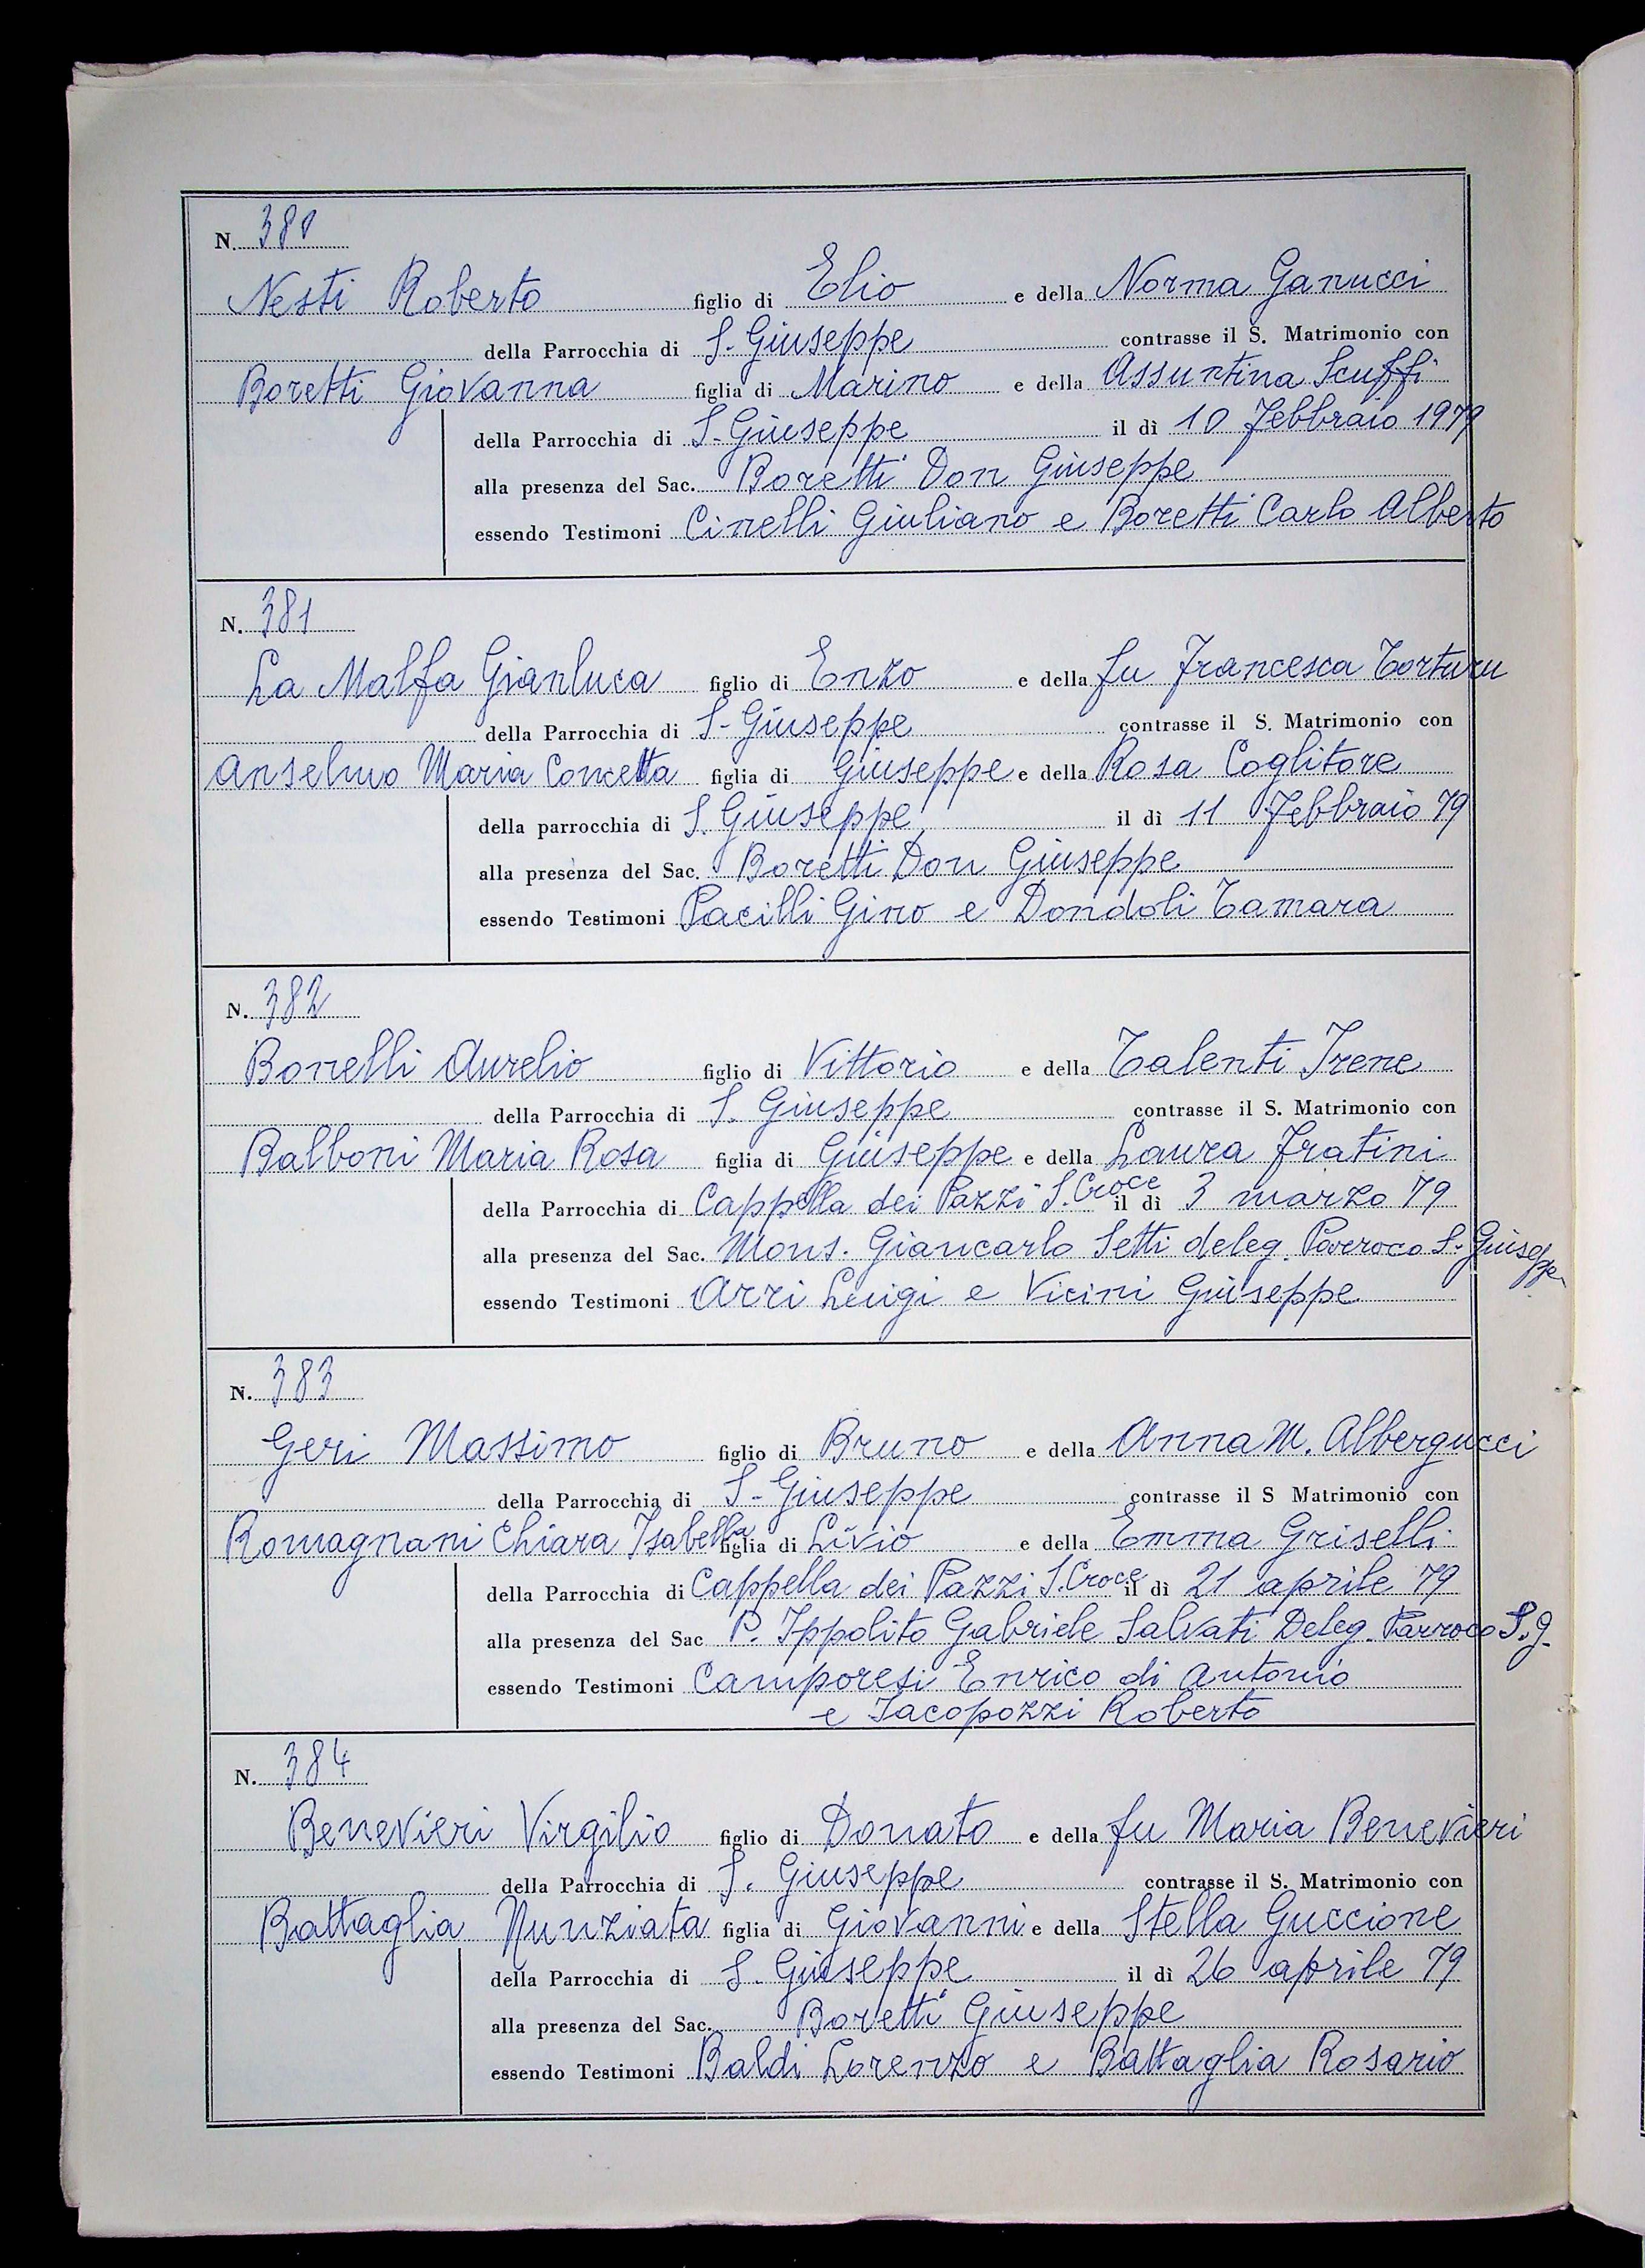 N. 380
Nesti Roberto figlio di Elio e della Norma Ganucci
della Parrocchia di S. Giuseppe contrasse il S. Matrimonio con
Boretti Giovanna figlia di Marino e della Assuntina Scuffi
della Parrocchia di S. Giuseppe il dì 10 Febbraio 1979
alla presenza del Sac. Boretti Don Giuseppe
essendo Testimoni Cinelli Giuliano e Boretti Carlo Alberto
N. 381
La Malfa Gianluca figlio di Enzo e della fu Francesca Torturu
della Parrocchia di S. Giuseppe contrasse il S. Matrimonio con
Anselmo Maria Concetta figlia di Giuseppe e della Rosa Coglitore
della parrocchia di S. Giuseppe il dì 11 Febbraio 79
alla presenza del Sac. Boretti Don Giuseppe
essendo Testimoni Pacilli Gino e Dondoli Tamara
N. 382
Bonelli Aurelio figlio di Vittorio e della Talenti Irene
della Parrocchia di S. Giuseppe contrasse il S. Matrimonio con
Balboni Maria Rosa figlia di Giuseppe e della Laura Fratini
della Parrocchia di Cappella dei Pazzi S. Croce il dì 3 marzo 79
alla presenza del Sac. Mons. Giancarlo Setti deleg. Parroco S. Giuseppe
essendo Testimoni Arri Luigi e Vicini Giuseppe
N. 383
Geri Massimo figlio di Bruno e della Anna M. Albergucci
della Parrocchia di S. Giuseppe contrasse il S Matrimonio con
Romagnani Chiara Isabella figlia di Livio e della Emma Griselli
della Parrocchia di Cappella dei Pazzi S. Croce il dì 21 aprile 79
alla presenza del Sac P. Ippolito Gabriele Salvati Deleg. Parroco S. G.
essendo Testimoni Camporesi Enrico di Antonio
e Iacopozzi Roberto
N. 384
Benevieri Virgilio figlio di Donato e della fu Maria Benevieri
della Parrocchia di S. Giuseppe contrasse il S. Matrimonio con
Battaglia Nunziata figlia di Giovanni e della Stella Guccione
della Parrocchia di S. Giuseppe il dì 26 aprile 79
alla presenza del Sac. Boretti Giuseppe
essendo Testimoni Baldi Lorenzo e Battaglia Rosario